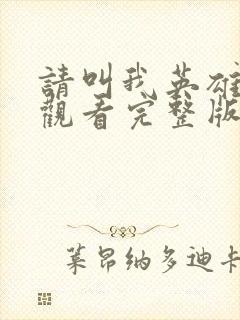 請叫我英雄
觀看完整版
萊昂纳多迪卡